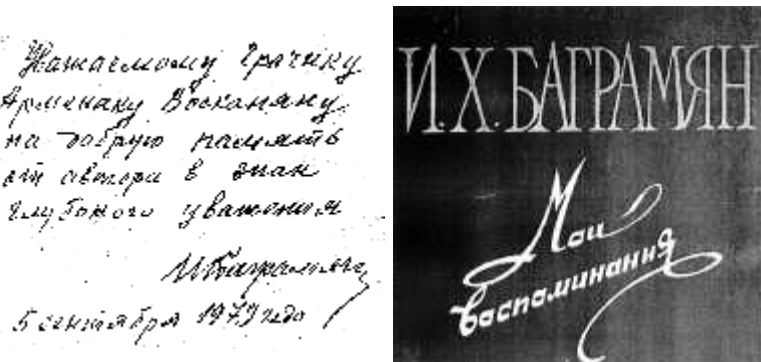 Уважаемому Грачику
Арменаку Восканяну
на добрую память
от автора в знак
глубокого уважения
И Баграмян
5 сентября 1979 года
И.Х. БАГРАМЯН
Мои
воспоминания